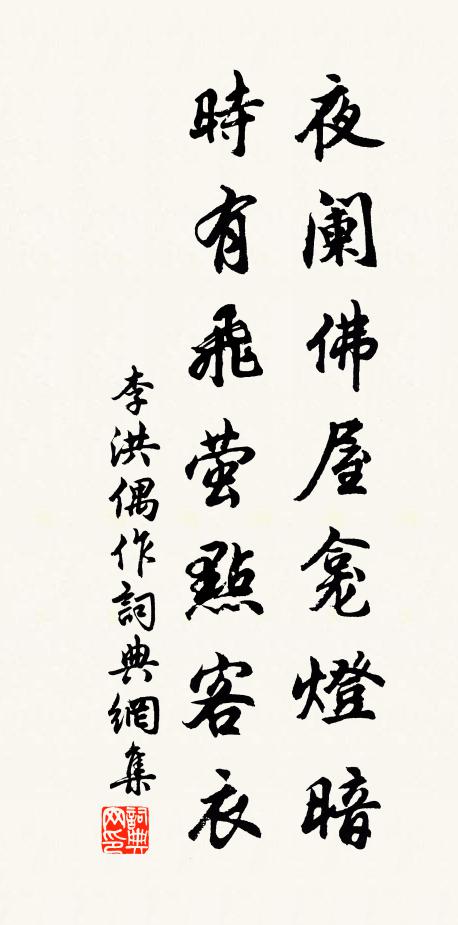 夜阑佛屋龛燈暗
時有飛萤點客衣
李洪偶作詞典網集
詞典网印